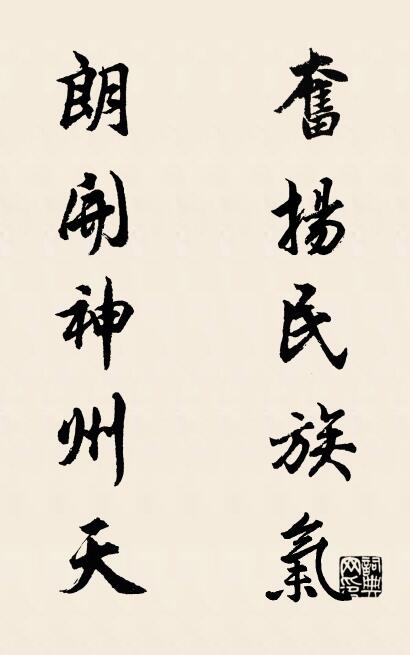 奮揚民族氣
朗開神州天
詞典網印